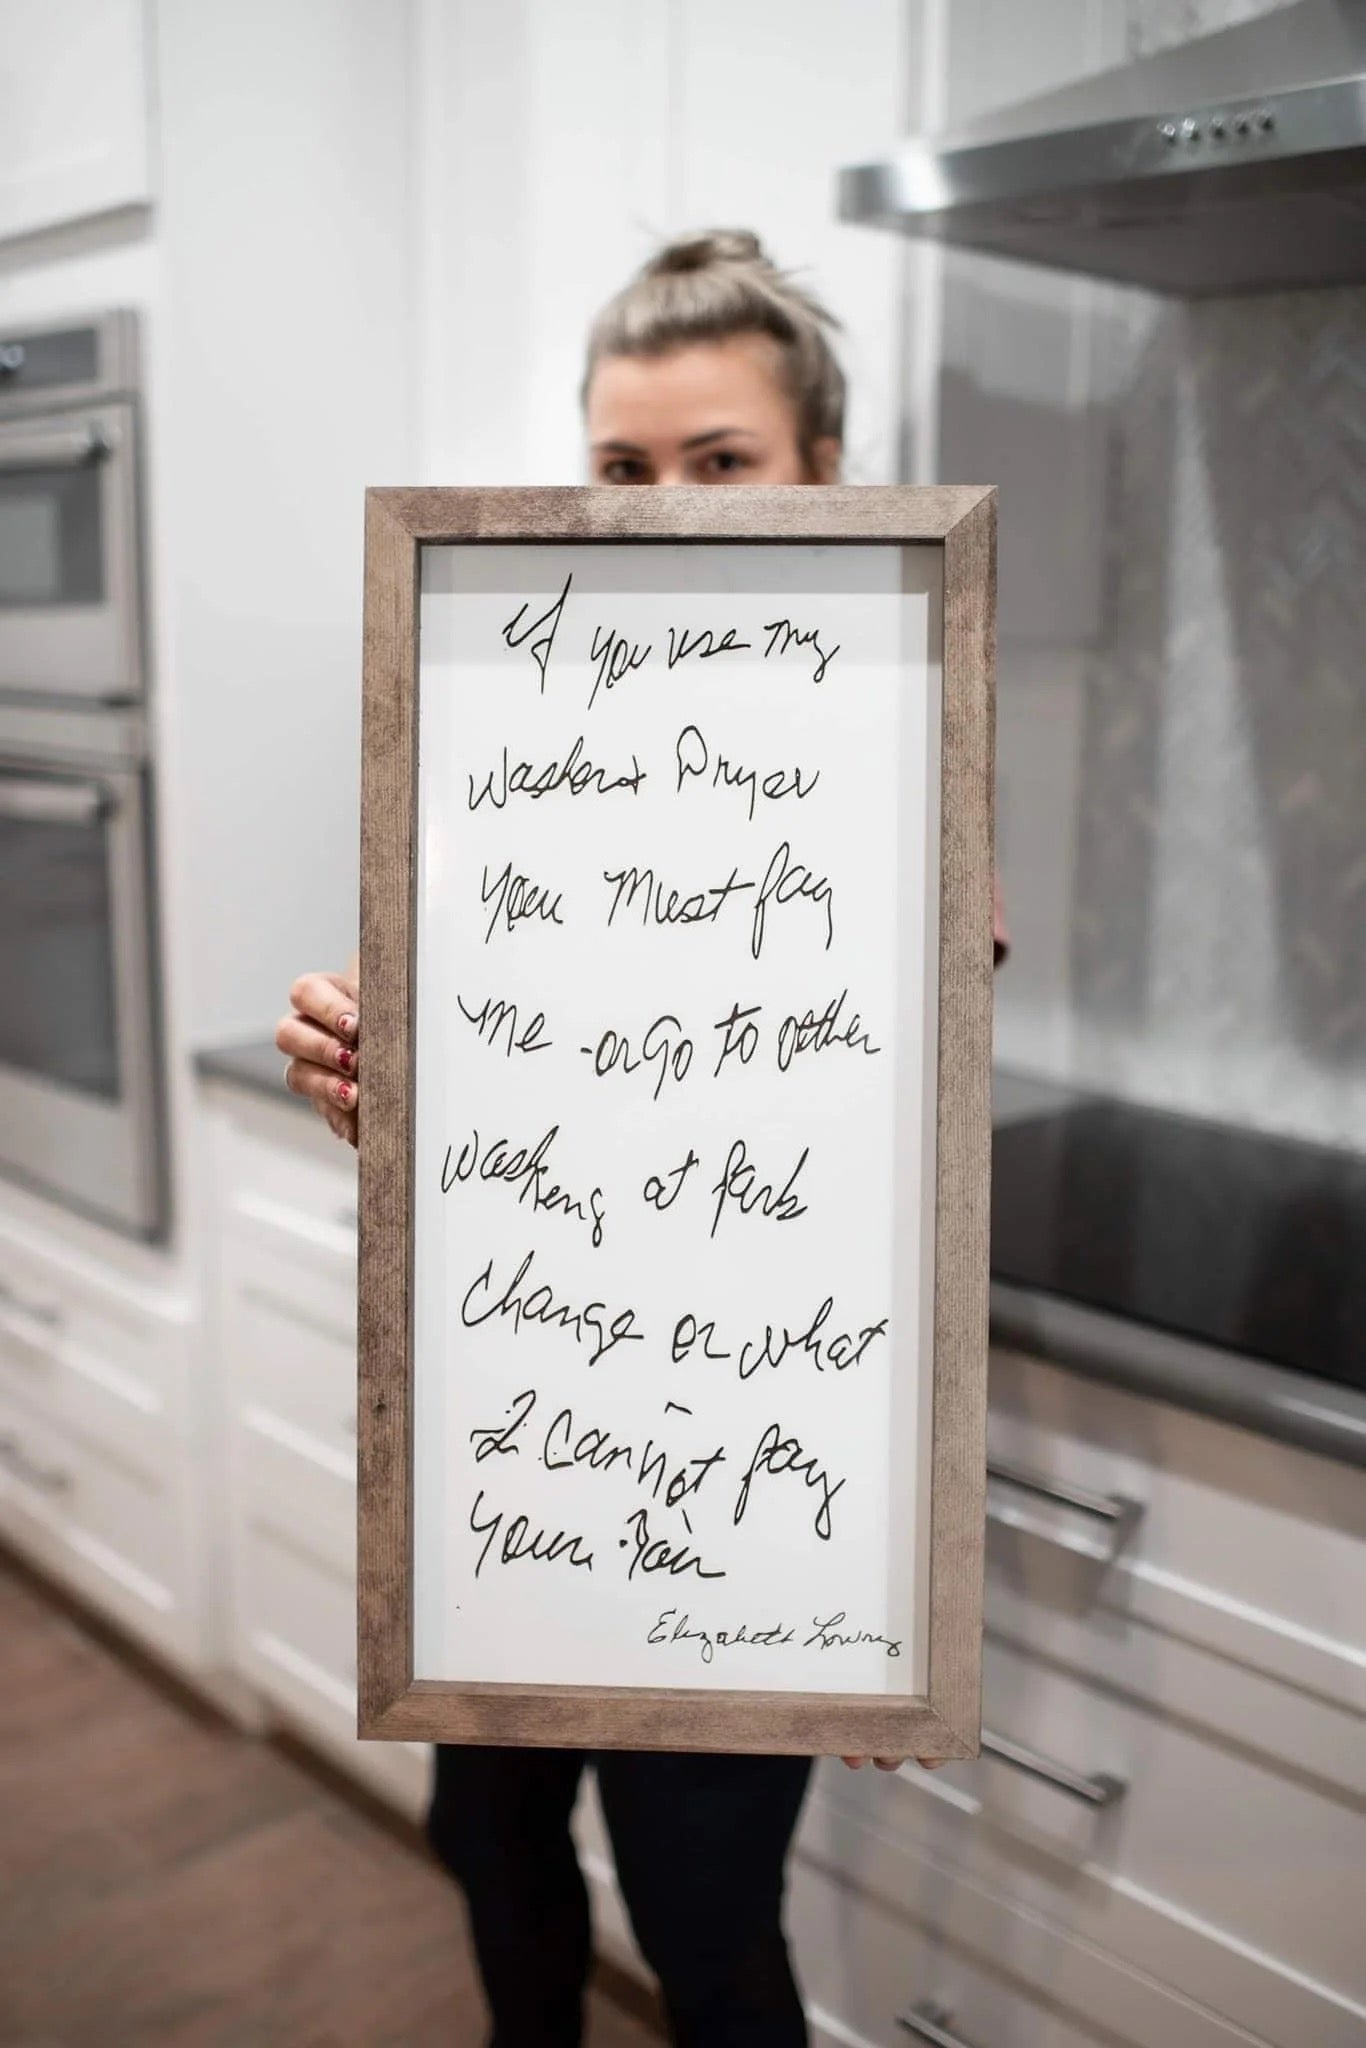 If you use my
Washer & Dryer
you must pay
me - or go to other
washing at park
change or what
I cannot pay
your
Elizabeth Lowrey